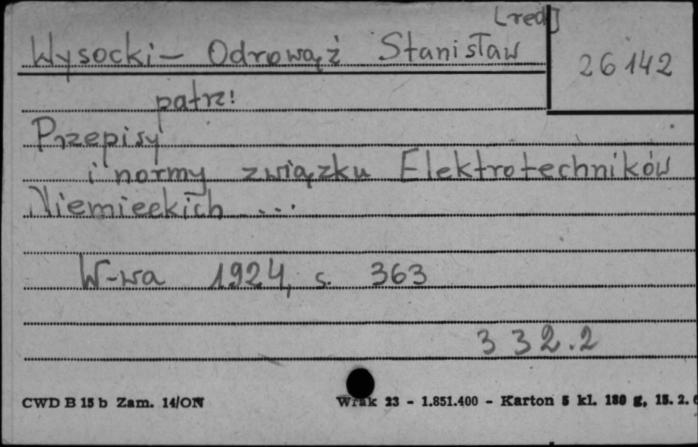 [red]
Wysocki - Odrowąż Stanisław
26142
patrz!
Przepisy
i normy związku Elektrotechników
Niemieckich ...
W-wa 1924, s. 363
332.2
CWD B 15 b Zam. 14/ON
Wrak 23 - 1.851.400 - Karton 5 kl. 180 g, 15. 2. 6